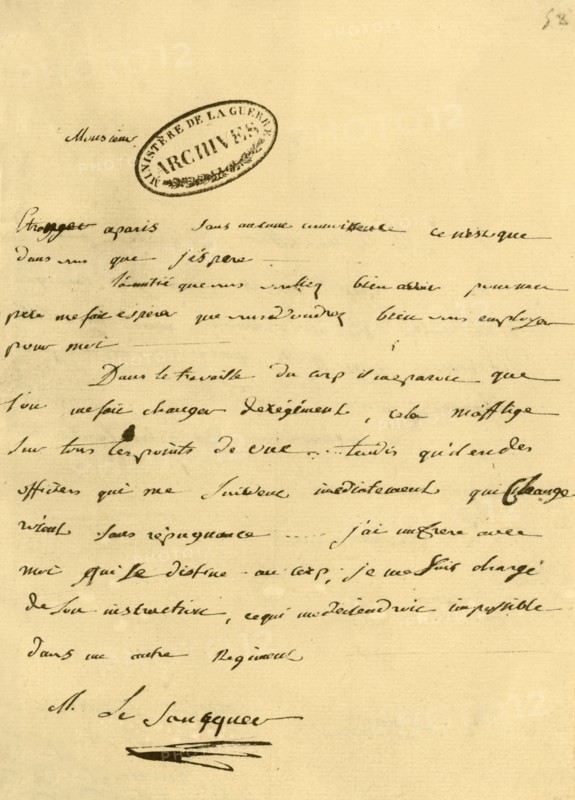 58
Monsieur
MINISTÈRE DE LA GUERRE
ARCHIVES
Etranger a paris sans aucune ce n'est que
dans vous que j'éspere
l'amitié que vous vouliez bien avoir pour mon
pere me fait esperer que vous voudrez bien vous employer
pour moi
Dans le travaille du corp il me paroit que
l'on me fait changer de régément, cela m'afflige
sur tous les points de vue ... tandis qu'il en des
officiers qui me suivent imédiatement qui change
roient sans répugnance ..... j'ai un frere avec
moi qui se destine au corp, je me suis chargé
de son instruction, ce qui me deviendroit impossible
dans un autre Regiment
M. Le